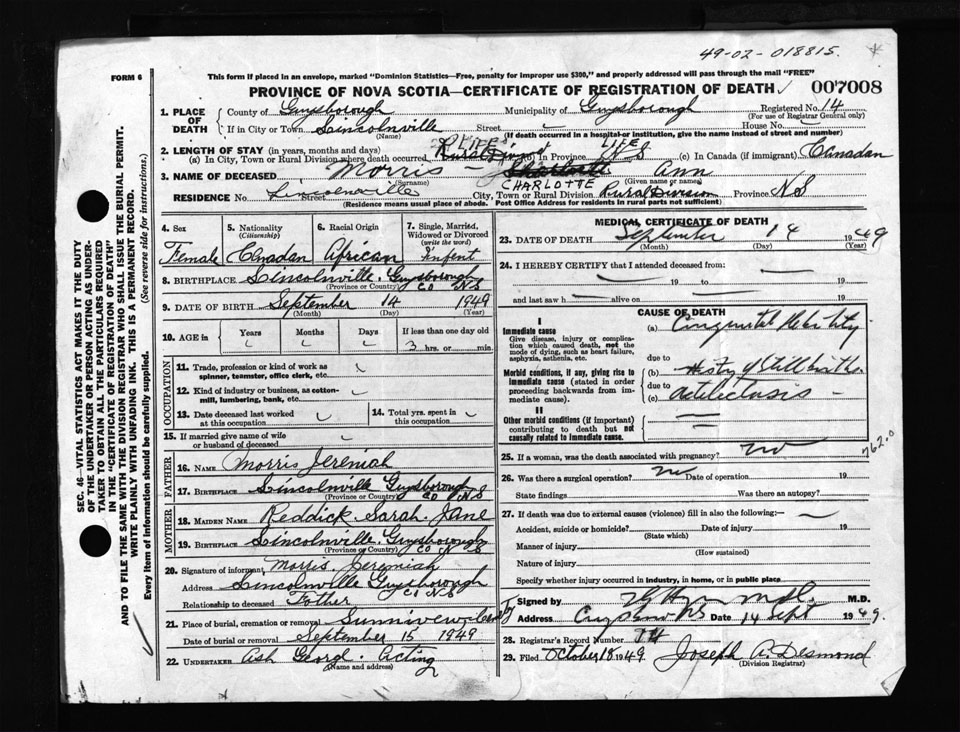 49-02-018815.
FORM 6
This form if placed in an envelope, marked "Dominion Statistics—Free, penalty for improper use $300," and properly addressed will pass through the mail "FREE"
PROVINCE OF NOVA SCOTIA—CERTIFICATE OF REGISTRATION OF DEATH 007008
1. PLACE OF DEATH
County of Guysborough Municipality of Guysborough Registered No. 14
(For use of Registrar General only)
If in City or Town Lincolnville Street House No.
(Name) (If death occurred in a hospital or institution, give the name instead of street and number)
2. LENGTH OF STAY (in years, months and days) LIFE LIFE
(a) In City, Town or Rural Division where death occurred, In Province N S (c) In Canada (if immigrant) Canadan
3. NAME OF DECEASED Morris - Charlotte Ann
(Surname) CHARLOTTE (Given name or names)
RESIDENCE No. Lincolnville Street City, Town or Rural Division Rural Division Province N S
(Residence means usual place of abode. Post Office Address for residents in rural parts not sufficient)
4. Sex
Female
5. Nationality (Citizenship)
Canadan
6. Racial Origin
African
7. Single, Married, Widowed or Divorced (write the word)
Infent
8. BIRTHPLACE Lincolnville. Guysborough
(Province or Country) CO N S
9. DATE OF BIRTH September 14 1949
(Month) (Day) (Year)
10. AGE in Years Months Days If less than one day old
3 hrs. or min.
OCCUPATION
11. Trade, profession or kind of work as spinner, teamster, office clerk, etc.
12. Kind of industry or business, as cotton-mill, lumbering, bank, etc.
13. Date deceased last worked at this occupation
14. Total yrs. spent in this occupation
15. If married give name of wife or husband of deceased
FATHER
16. NAME Morris Jeremiah
17. BIRTHPLACE Lincolnville Guysborough
(Province or Country) CO N.S
MOTHER
18. MAIDEN NAME Reddick. Sarah. Jane
19. BIRTHPLACE Lincolnville. Guysborough
(Province or Country) CO N S
20. Signature of informant Morris. Jeremiah
Address Lincolnville Guysborough
CO N.S
Relationship to deceased Father
21. Place of burial, cremation or removal
Date of burial or removal September 15 1949
22. UNDERTAKER Ash George. Acting
(Name and address)
MEDICAL CERTIFICATE OF DEATH
23. DATE OF DEATH September 14 1949
(Month) (Day) (Year)
24. I HEREBY CERTIFY that I attended deceased from:
19 to 19
and last saw h alive on 19
CAUSE OF DEATH
I
Immediate cause
Give disease, injury or complication which caused death, not the mode of dying, such as heart failure, asphyxia, asthenia, etc.
(a) Congenital Debility
due to
Morbid conditions, if any, giving rise to immediate cause (stated in order proceeding backwards from immediate cause).
(b) History of Stillbirths.
due to
(c) Atelectasis -
II
Other morbid conditions (if important) contributing to death but not causally related to immediate cause.
762.0
25. If a woman, was the death associated with pregnancy? no
26. Was there a surgical operation? no Date of operation 19
State findings Was there an autopsy?
27. If death was due to external causes (violence) fill in also the following:—
Accident, suicide or homicide? Date of injury 19
(State which)
Manner of injury
(How sustained)
Nature of injury
Specify whether injury occurred in industry, in home, or in public place
Signed by M.D.
Address Date 14 Sept 1949
28. Registrar's Record Number 14
29. Filed October 18 1949 Joseph A. Desmond
(Division Registrar)
SEC. 46—VITAL STATISTICS ACT MAKES IT THE DUTY OF THE UNDERTAKER OR PERSON ACTING AS UNDERTAKER TO OBTAIN ALL THE PARTICULARS REQUIRED IN THE "CERTIFICATE OF REGISTRATION OF DEATH"
AND TO FILE THE SAME WITH THE DIVISION REGISTRAR WHO SHALL ISSUE THE BURIAL PERMIT.
WRITE PLAINLY WITH UNFADING INK. THIS IS A PERMANENT RECORD.
Every item of information should be carefully supplied. (See reverse side for instructions).